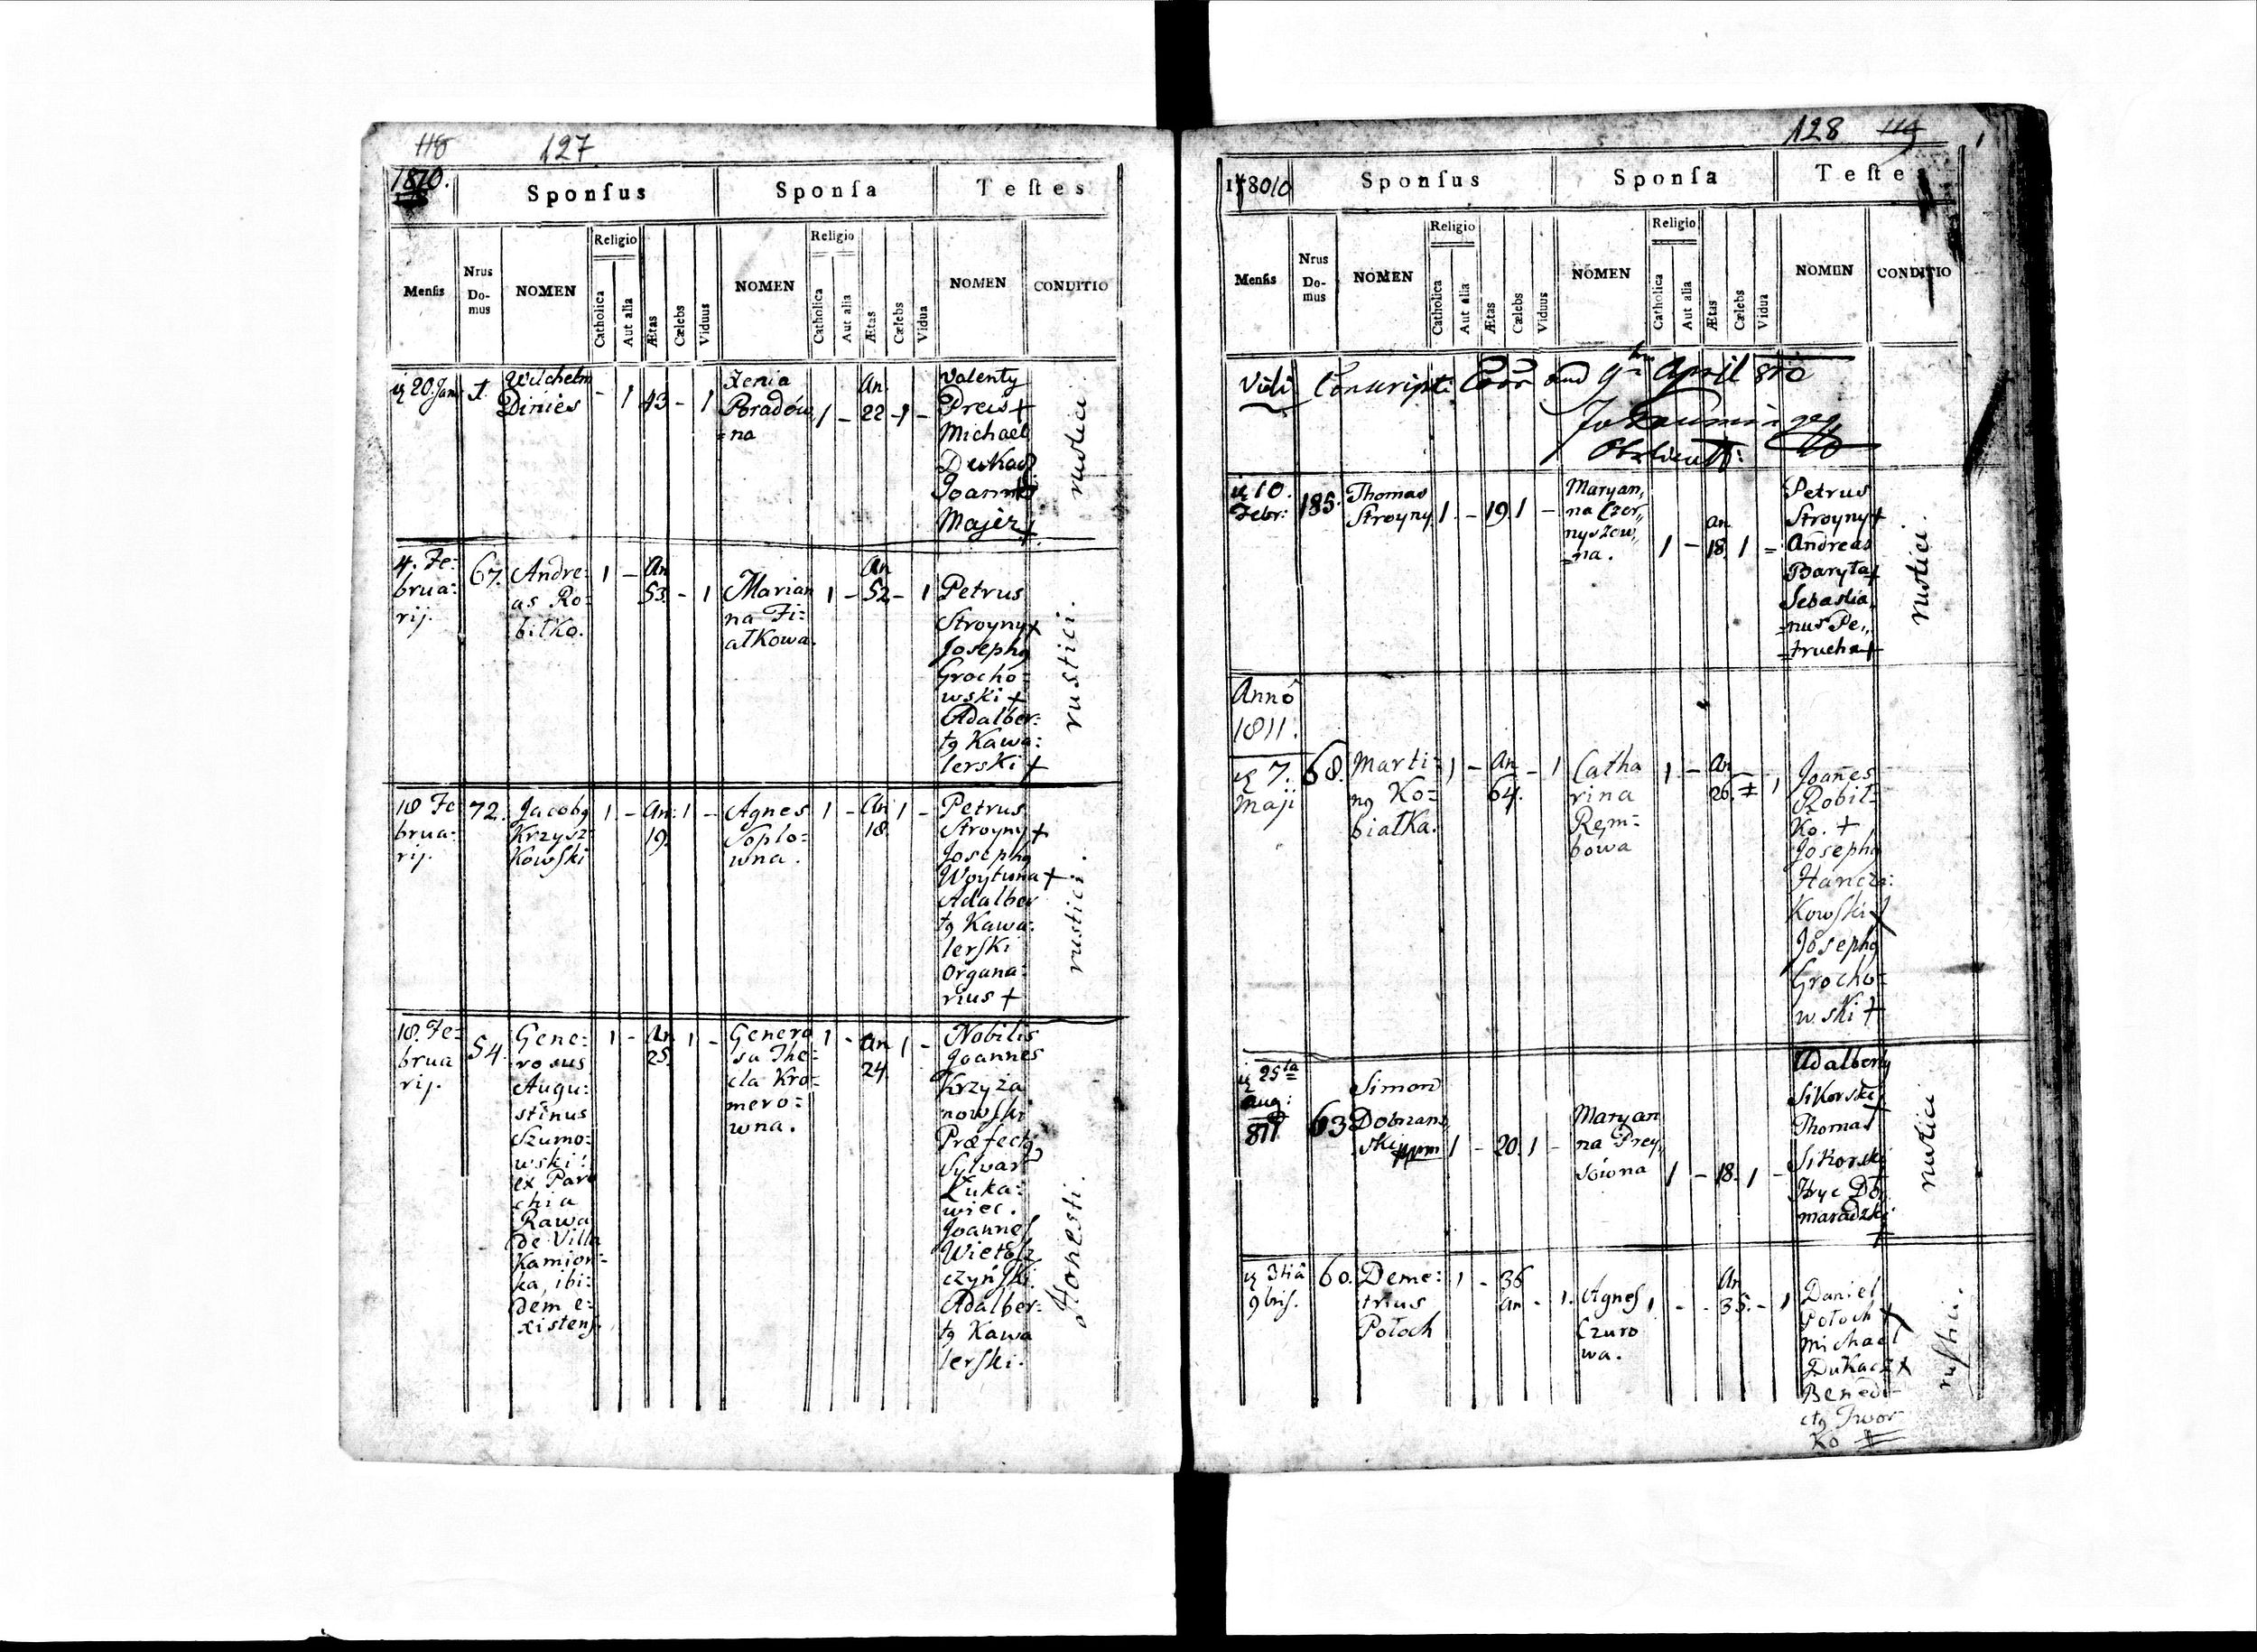 118 127
1810.
Sponſus Sponſa Teſtes
Menſis
Nrus Do-mus
NOMEN
Religio
Catholica
Aut alia
Ætas
Cælebs
Viduus
NOMEN
Religio
Catholica
Aut alia
Ætas
Cælebs
Vidua
NOMEN
CONDITIO
20. Jan 1. Wilchelm
Dinies
- 1 43 - 1
Xenia
Poradów
=na
1 - An
22 - 1 -
Valenty
Preis +
Michael
Dukacz
Joannes
Majer +
rustici
4. Fe:
brua:
rij.
67. Andre:
as Ro:
biłko.
1 - An
53. - 1
Marian
na Fi:
ałkowa.
1 - An
52 - 1
Petrus
Stroyny +
Joseph9
Grocho:
wski +
Adalber:
t9 Kawa:
lerski +
rustici.
18 Fe
brua:
rij.
72. Jacob9
Krzysz:
kowſki
1 - An:
19. 1 -
Agnes
Soplo:
wna.
1 - An
18. 1 -
Petrus
Stroyny +
Joseph9
Woytuna +
Adalber
t9 Kawa:
lerſki
Organa:
rius +
rustici.
18. Fe:
brua
rij.
54. Gene:
rosus
Augu:
stinus
Szumo:
wski:
ex Paro
chia
Rawa
de Villa
Kamion:
ka, ibi:
dem e:
xistens.
1 - An
25. 1 -
Genero
sa The:
cla Kro:
mero:
wna.
1 - An
24. 1 -
Nobilis
Joannes
Krzyża
nowſki
Præfect9
Sylvar
Łuka:
wiec.
Joannes
Wietosz
czyńſki
Adalber:
t9 Kawa
lerſki.
Honesti.
128 119
18010
Sponſus Sponſa Teſtes
Menſis
Nrus Do-mus
NOMEN
Religio
Catholica
Aut alia
Ætas
Cælebs
Viduus
NOMEN
Religio
Catholica
Aut alia
Ætas
Cælebs
Vidua
NOMEN
CONDITIO
Vidi April 810
10.
Febr:
185. Thomas
Stroyny
1. - 19. 1 -
Maryan,,
na Czer,,
nyszow,,
=na.
1 - an
18. 1 =
Petrus
Stroyny +
Andreas
Baryła +
Sebastia,,
=nus Pe,,
=trucha +
rustici.
Annô
1811.
7.
Maji
68. Marti:
n9 Ko:
białka.
1 - An
64. - 1
Catha
rina
Rem:
bowa
1. - An
26. 1
Joañes
Robił:
ko. +
Joseph9
Hancza:
kowſki +
Joseph9
Grocho:
w.ski +
25ta
Aug:
811
63. Simon
Dobrzans,,
ski
1 - 20. 1 -
Maryan
na Prey,,
sówna
1 - 18. 1 -
Adalberty
Sikorski +
Thomas
Sikorski
Hryc Do,,
maradzki
+
rustici
3tiâ
9bris.
60. Deme:
trius
Połoch
1 - 36
an - 1.
Agnes
Czuro
wa.
1 - An
35. - 1
Daniel
Połoch +
Michael
Dukacz +
Bened:
ct9 Iwor
ko
rustici.